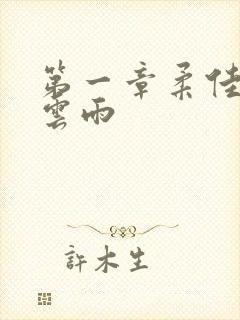 第一章柔佳
雲雨
許木生